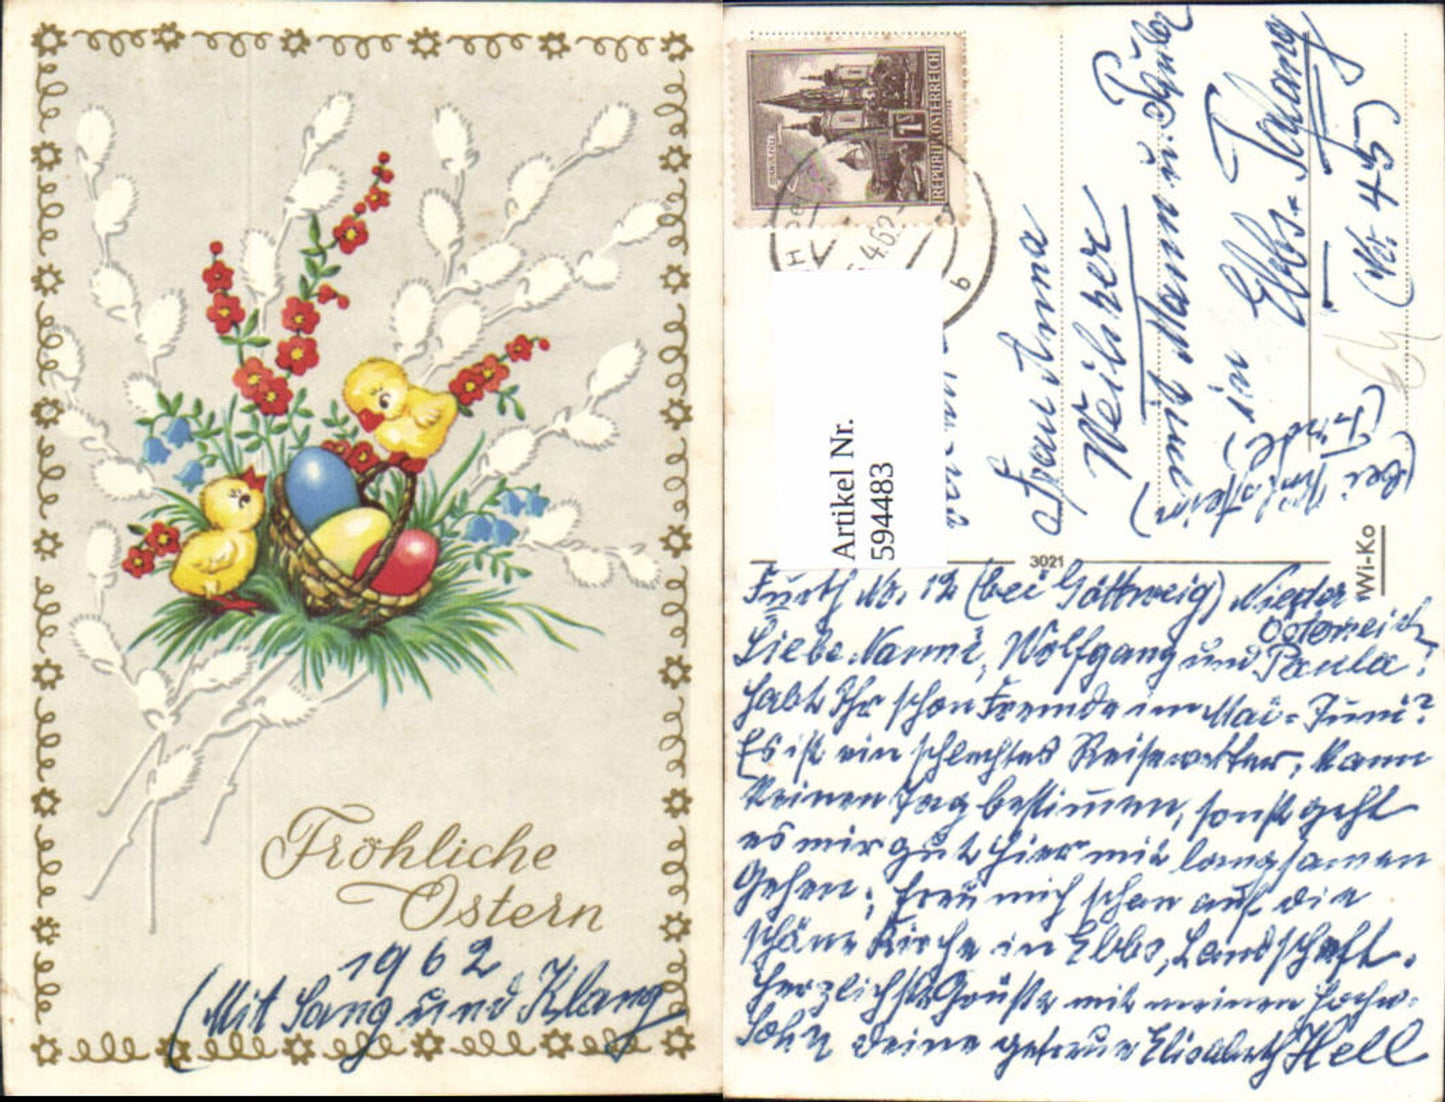 Fröhliche
Ostern
1962
(Mit Sang und Klang
MARIAZELL
1 S
REPUBLIK ÖSTERREICH
4.62
Artikel Nr.
594483
Frau Anna
Weilner
mit Mann u. Bub
in Ebbs-Tafang
(Nr. 45)
(bei Kufstein)
(Tirol)
3021
Wi-Ko
Furth Nr. 12 (bei Göttweig) Nieder-
österreich
Liebe Nanni, Wolfgang und Paula!
Habt Ihr schon Fremde im Mai-Juni?
Es ist ein schlechtes Reisewetter, kann
keinen Tag bestimmen, sonst geht
es mir gut hier mit langsamen
Gehen; freu mich schon auf die
schöne Kirche in Ebbs, Landschaft.
Herzlichste Grüße mit meinem
Sohn deine getreue Elisabeth Hell